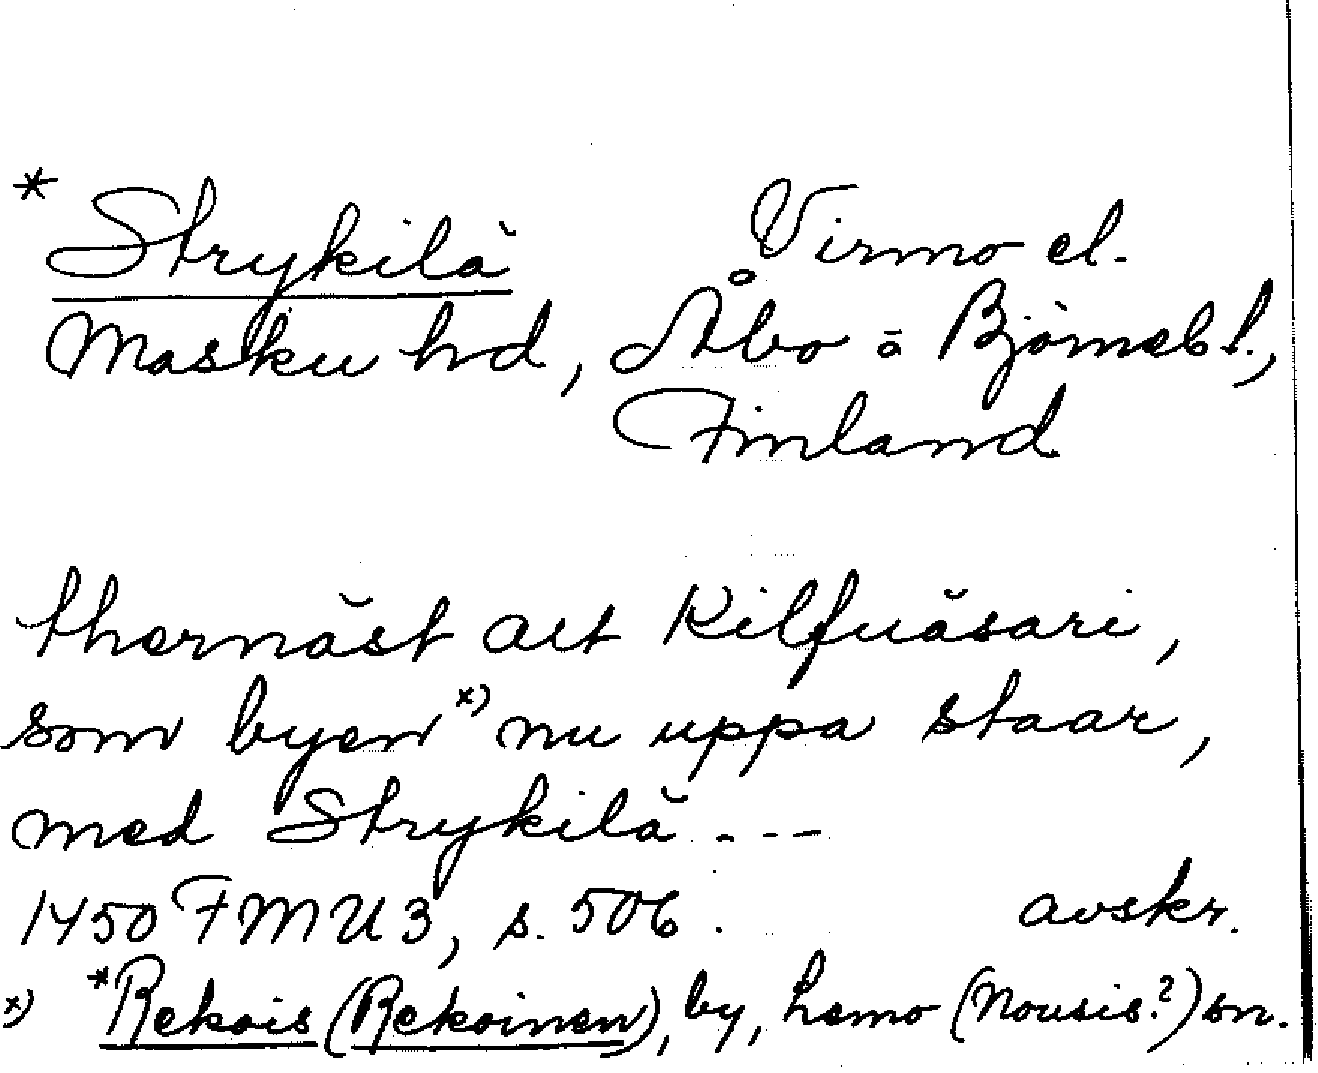 * Strykilä Virmo el.
Masku hd, Åbo o Björnebl.,
Finland
thernäst alt Kilfuäsari,
som byen x) nu uppa staar,
med Strykilä ---
1450 FMU 3, s. 506. avskr.
x) *Rekois (Rekoinen), by, Lemo (Nousis?) sn.